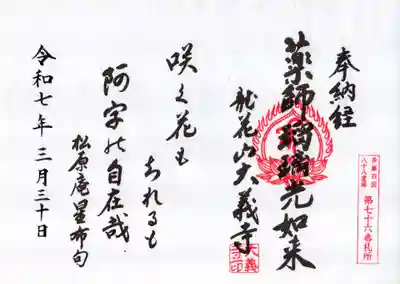 奉納経
多摩四国
八十八霊場
第七十六番札所
薬師瑠璃光如来
龍花山大義寺
大義寺印
咲く花も
ちれるも
阿字の自在哉
松原庵星布句
令和七年三月三十日